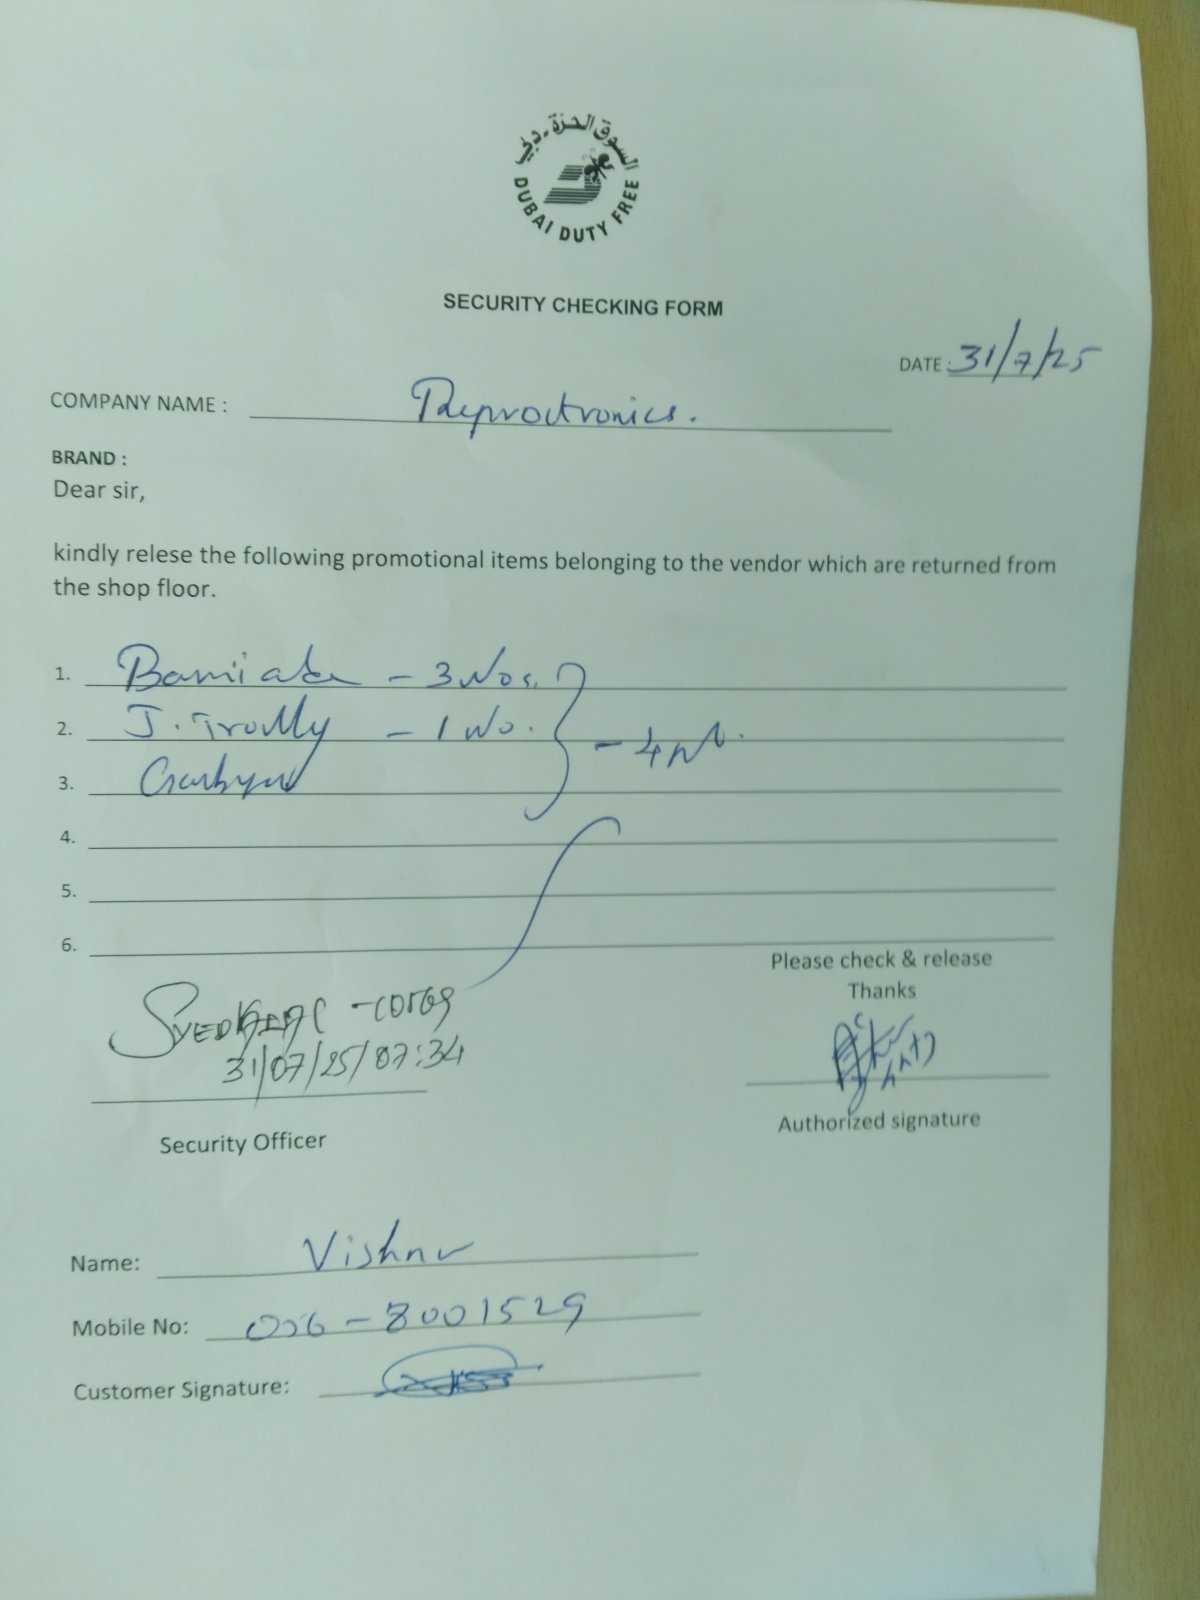 السوق الحرة - دبي
DUBAI DUTY FREE
SECURITY CHECKING FORM
DATE : 31/7/25
COMPANY NAME : Reproctronics.
BRAND :
Dear sir,
kindly relese the following promotional items belonging to the vendor which are returned from
the shop floor.
1. - 3 Nos.
2. J. Trolly - 1 No. - 4
3.
4.
5.
6.
Please check & release
Thanks
31/07/25/07:34
Authorized signature
Security Officer
Name: Vishnu
Mobile No: 056-8001529
Customer Signature: